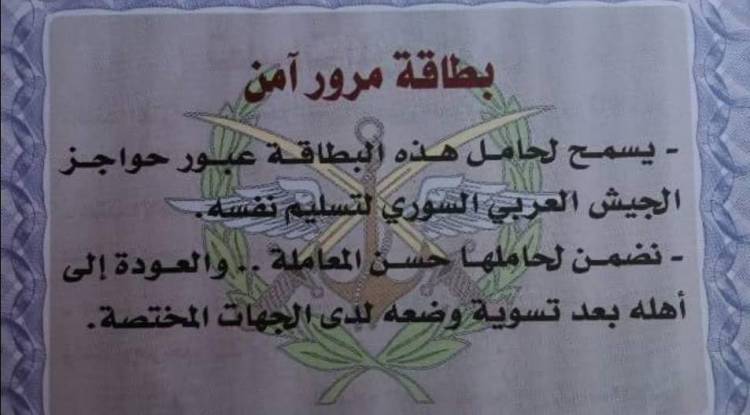 بطاقة مرور آمن
- يسمح لحامل هذه البطاقة عبور حواجز
الجيش العربي السوري لتسليم نفسه.
- نضمن لحاملها حسن المعاملة .. والعودة إلى
أهله بعد تسوية وضعه لدى الجهات المختصة.